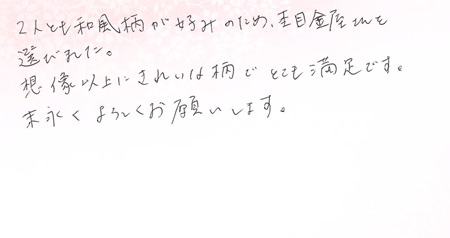 2人とも和風柄が好みのため、杢目金屋さんを
選びました。
想像以上にきれいな柄でとても満足です。
末永くよろしくお願いします。